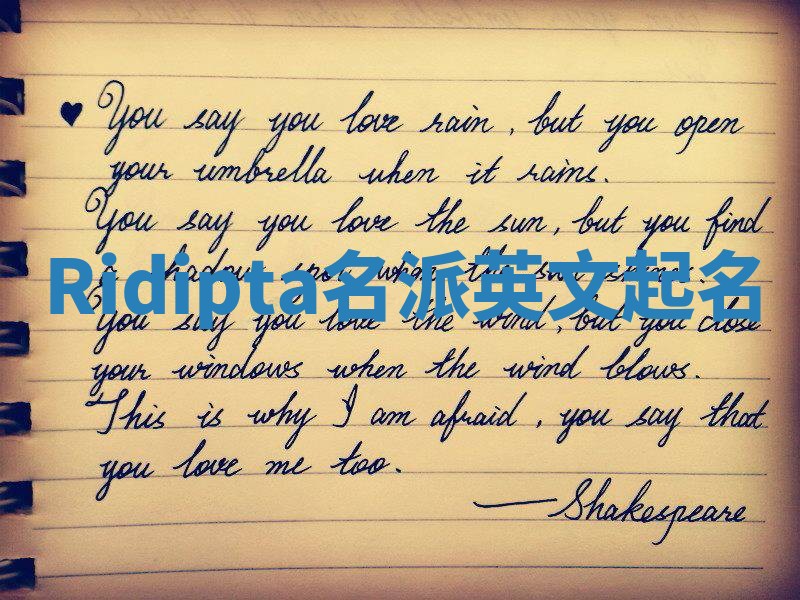 ♥ You say you love rain, but you open
your umbrella when it rains.
You say you love the sun, but you find
a shadow spot when the sun shines.
Ridipta名派英文起名
You say you love the wind, but you close
your windows when the wind blows.
This is why I am afraid, you say that
you love me too.
—Shakespeare